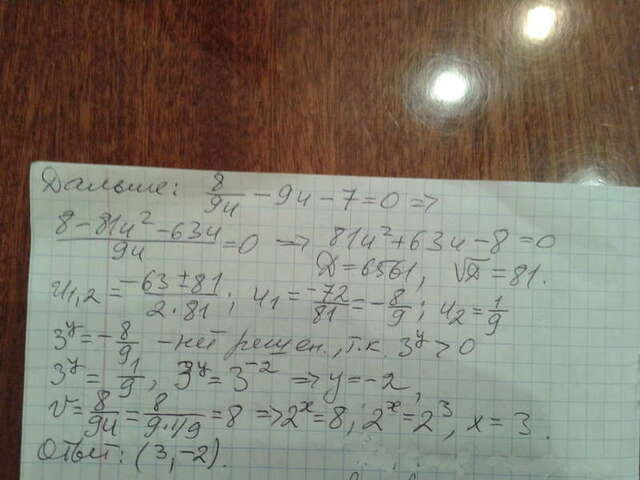 Дальше: 8/9u − 9u − 7 = 0 =>
(8 − 81u² − 63u)/9u = 0 => 81u² + 63u − 8 = 0
D = 6561, √D = 81.
u₁,₂ = (−63 ± 81)/(2·81); u₁ = −72/81 = −8/9; u₂ = 1/9
3^y = −8/9 – нет решен., т.к. 3^y > 0
3^y = 1/9, 3^y = 3^−2 => y = −2,
v = 8/9u = 8/(9·1/9) = 8 => 2^x = 8; 2^x = 2^3, x = 3.
Ответ: (3, −2).